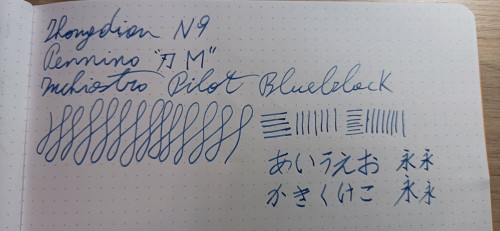 Zhongdian N9
Pennino "刃 M"
Inchiostro Pilot Blueblack
あいうえお 永永
かきくけこ 永永